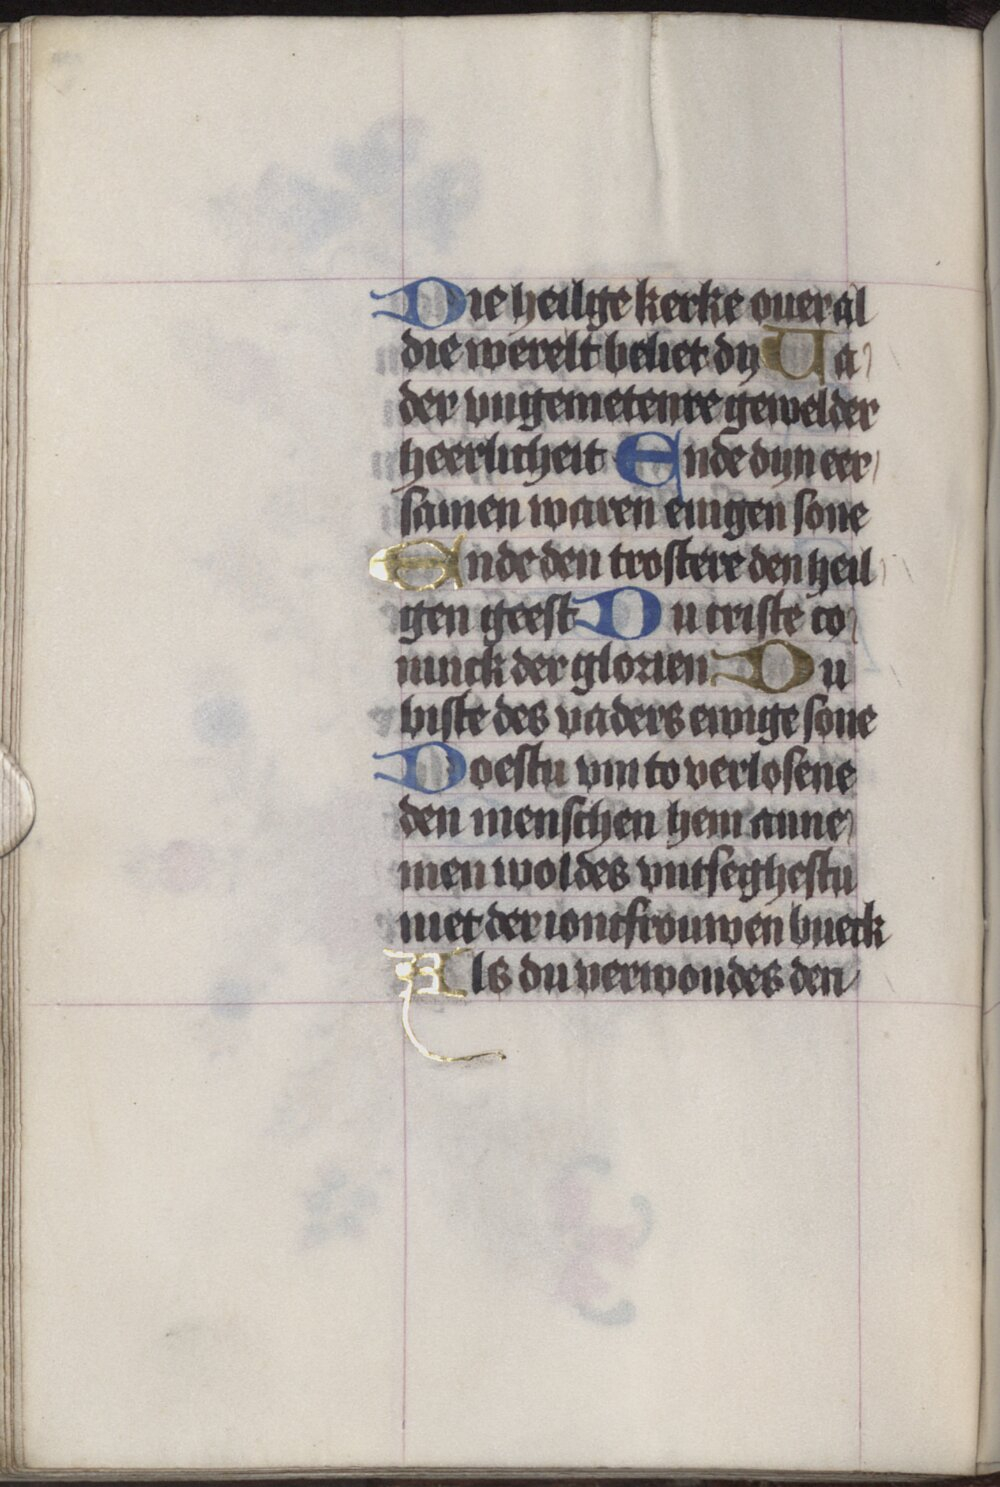 Die heilige kerke ouer al
die werelt beliet dy Va
der vngemetenre gewelder
heerlicheit Ende dyn eer
samen waren enigen sone
Ende den trostere den heil
gen geest Du criste co
ninck der glorien Du
biste des vaders ewige sone
Doestu vm to verlosene
den menschen hem anne
men woldes vntseghestu
niet der ioncfrouwen buerk
Als du verwondes den